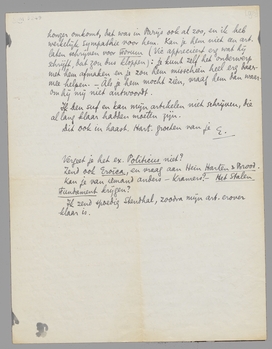 honger omkomt, het was in Parijs ook al zoo, en ik heb
werkelijk sympathie voor hem. Kan je hem niet een art.
laten schrijven voor (Vic apprecieert erg wat hij
schrijft, kan dus kloppen); je kunt zelf het onderwerp
met hem afmaken en je zou hem misschien heel erg daar-
mee helpen. Als je hem mocht zien, vraag hem dan waar-
om hij mij niet antwoordt.
Ik ben suf en kan mijn artikelen niet schrijven, die
al lang klaar hadden moeten zijn.
Dit ook in haast. Hart. groeten van je
E.
Vergeet je het ex. Politicus niet?
Zend ook Eroica, en vraag aan Hein
Kan je van iemand anders – Kramers? – Het Stalen
Fundament krijgen?
Ik zend spoedig Stendhal, zoodra mijn art. erover
klaar is.